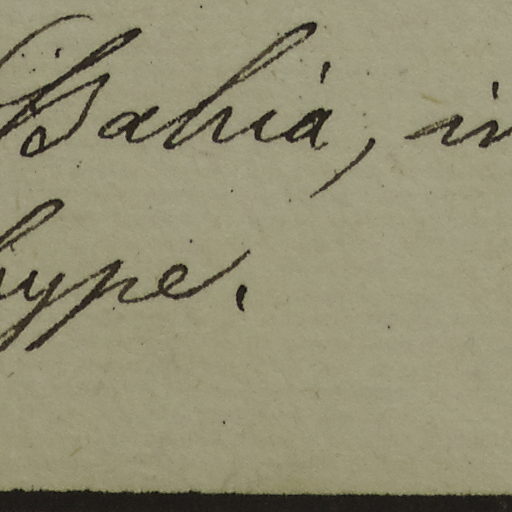 Bahia, in
hype.